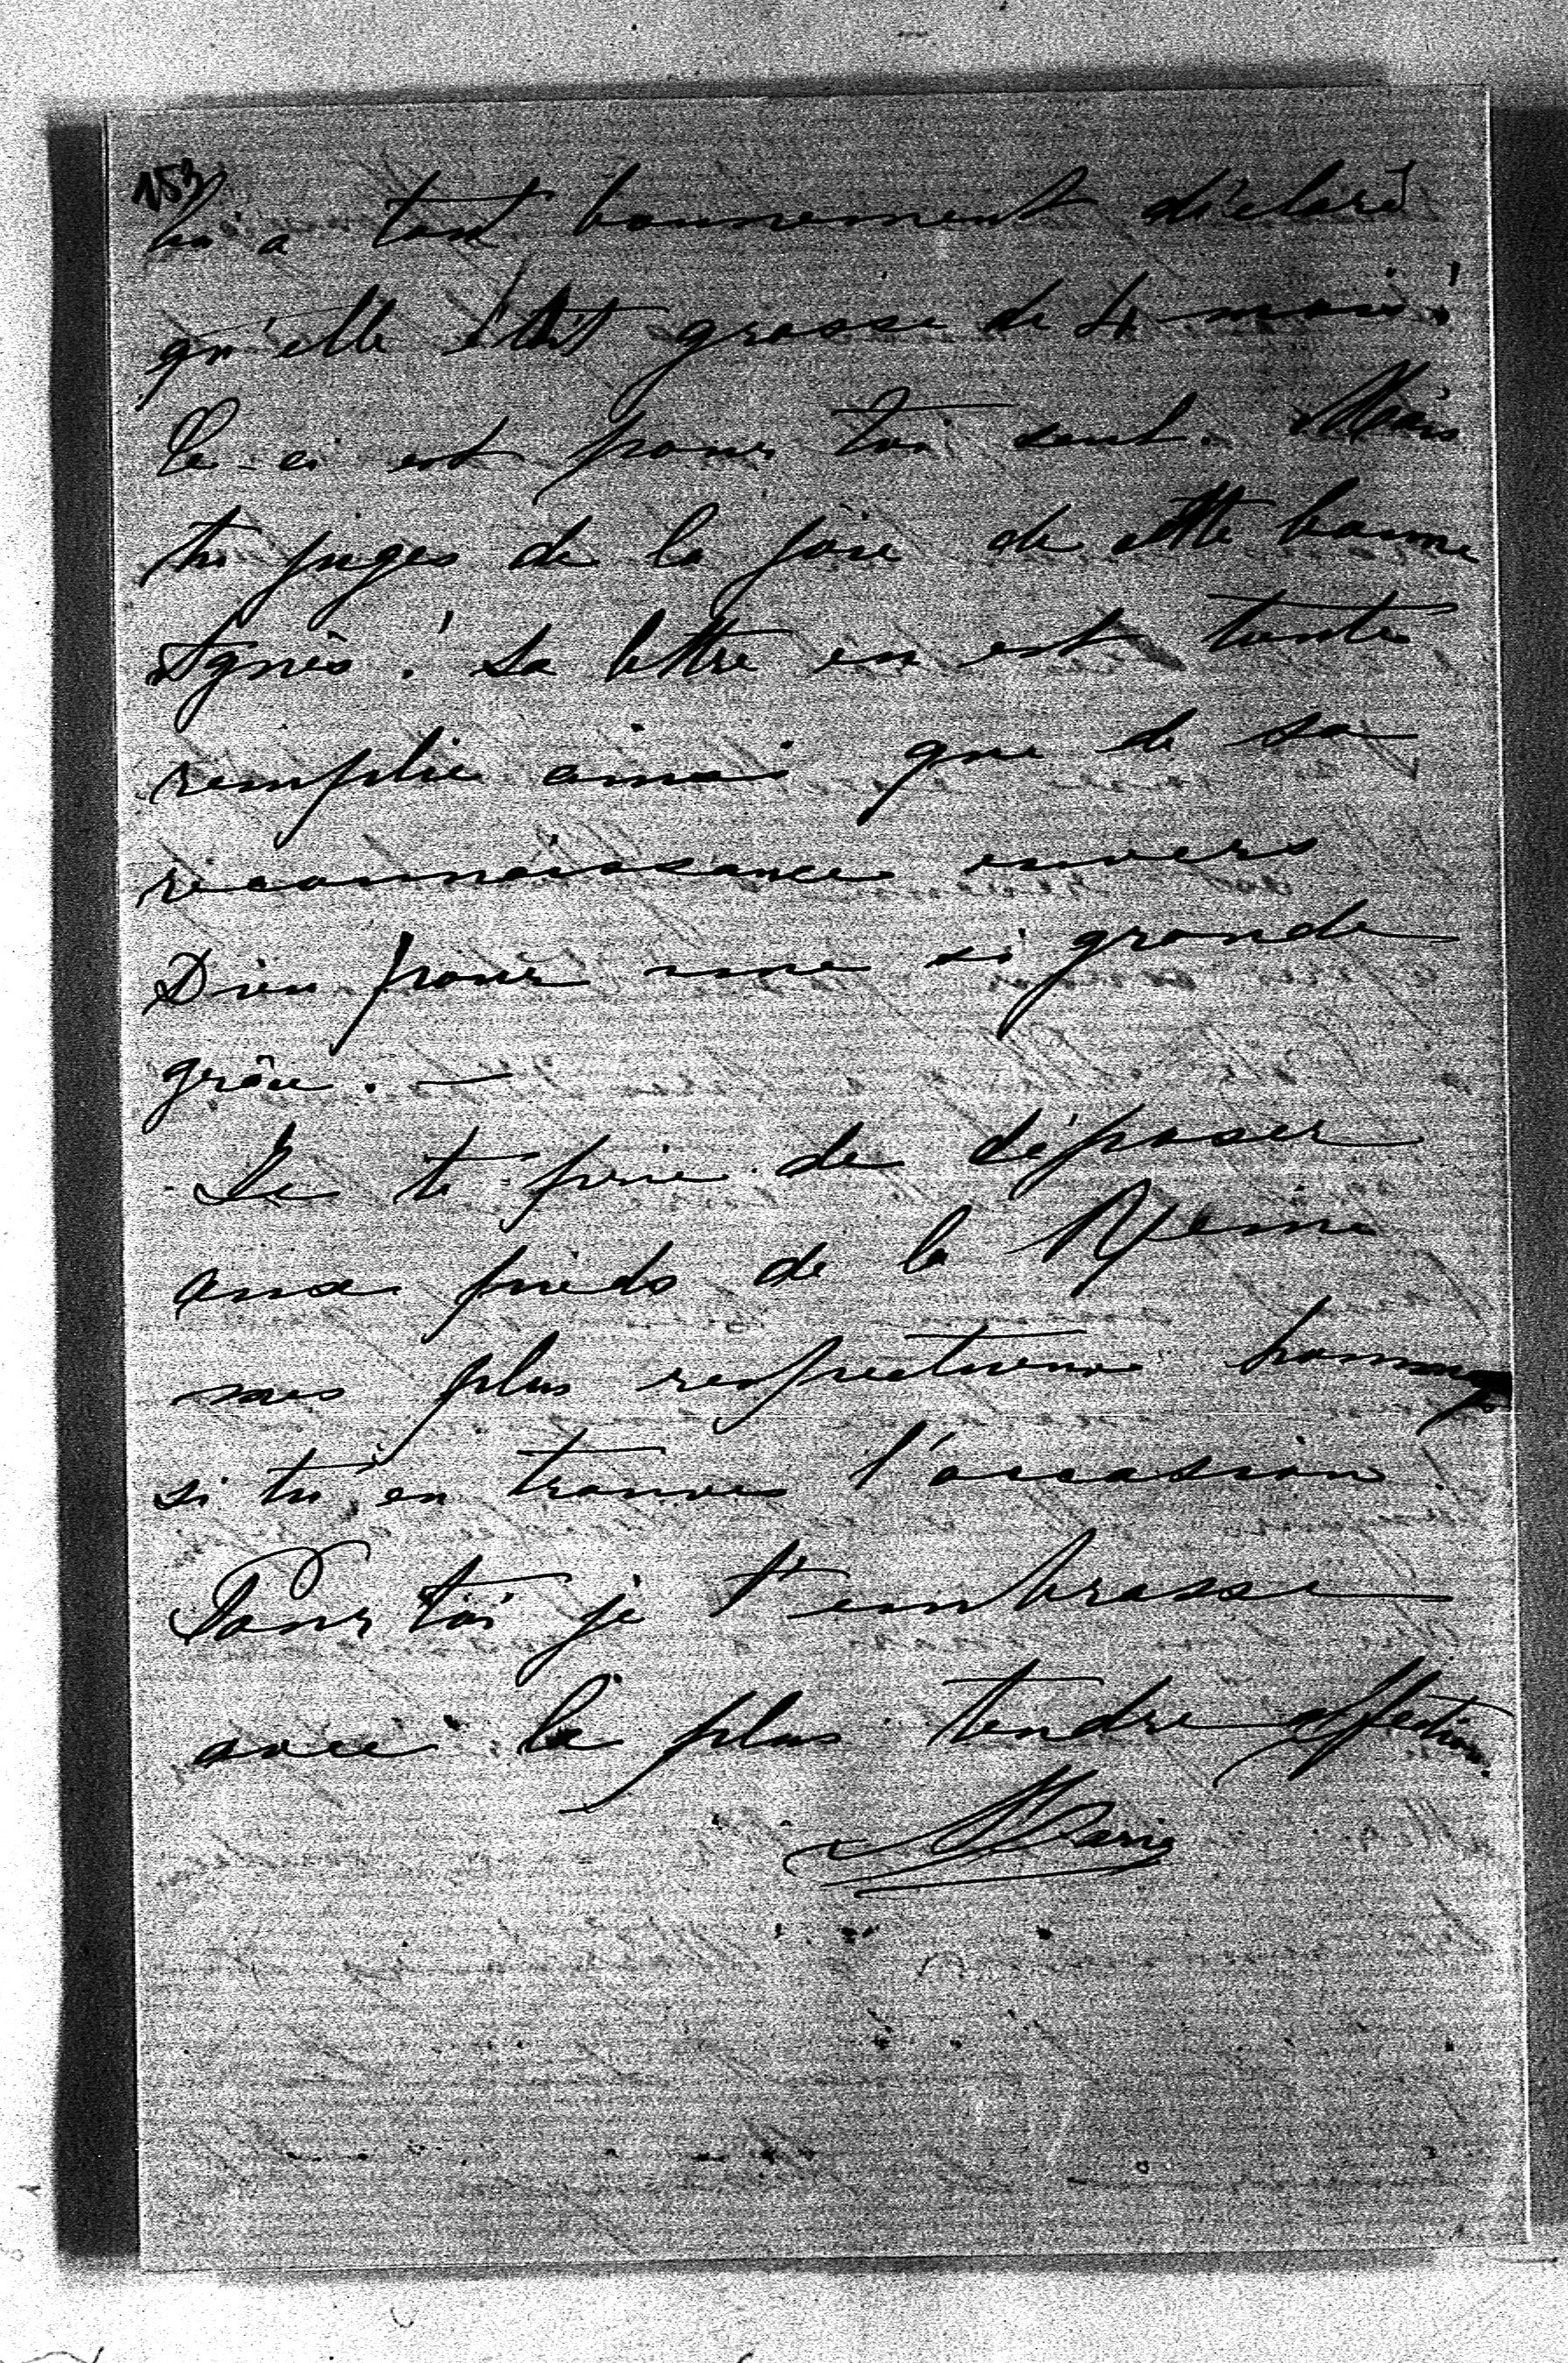 153
lui a tout bonnement déclaré
qu'elle était grosse de 4 mois!
Ce-ci est pour toi seul. Mais
tu juges de la joie de cette bonne
Agnès! Sa lettre en est toute
remplie ainsi que de sa
reconnaissance envers
Dieu pour une si grande
grâce. —
Je te prie de déposer
aux pieds de la Reine
mes plus respectueux hommages
si tu en trouves l'occasion.
Pour toi je t'embrasse
avec la plus tendre affection.
Marie